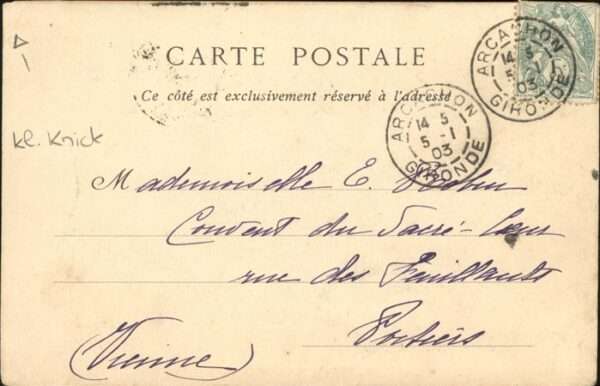 CARTE POSTALE
Ce côté est exclusivement réservé à l'adresse
ARCACHON
14 5
5 -1
03
GIRONDE
ARCACHON
14 5
5
03
GIRONDE
kl. Knick
Mademoiselle E.
Couvent du Sacré-Cœur
rue des Feuillants
Poitiers
(Vienne)